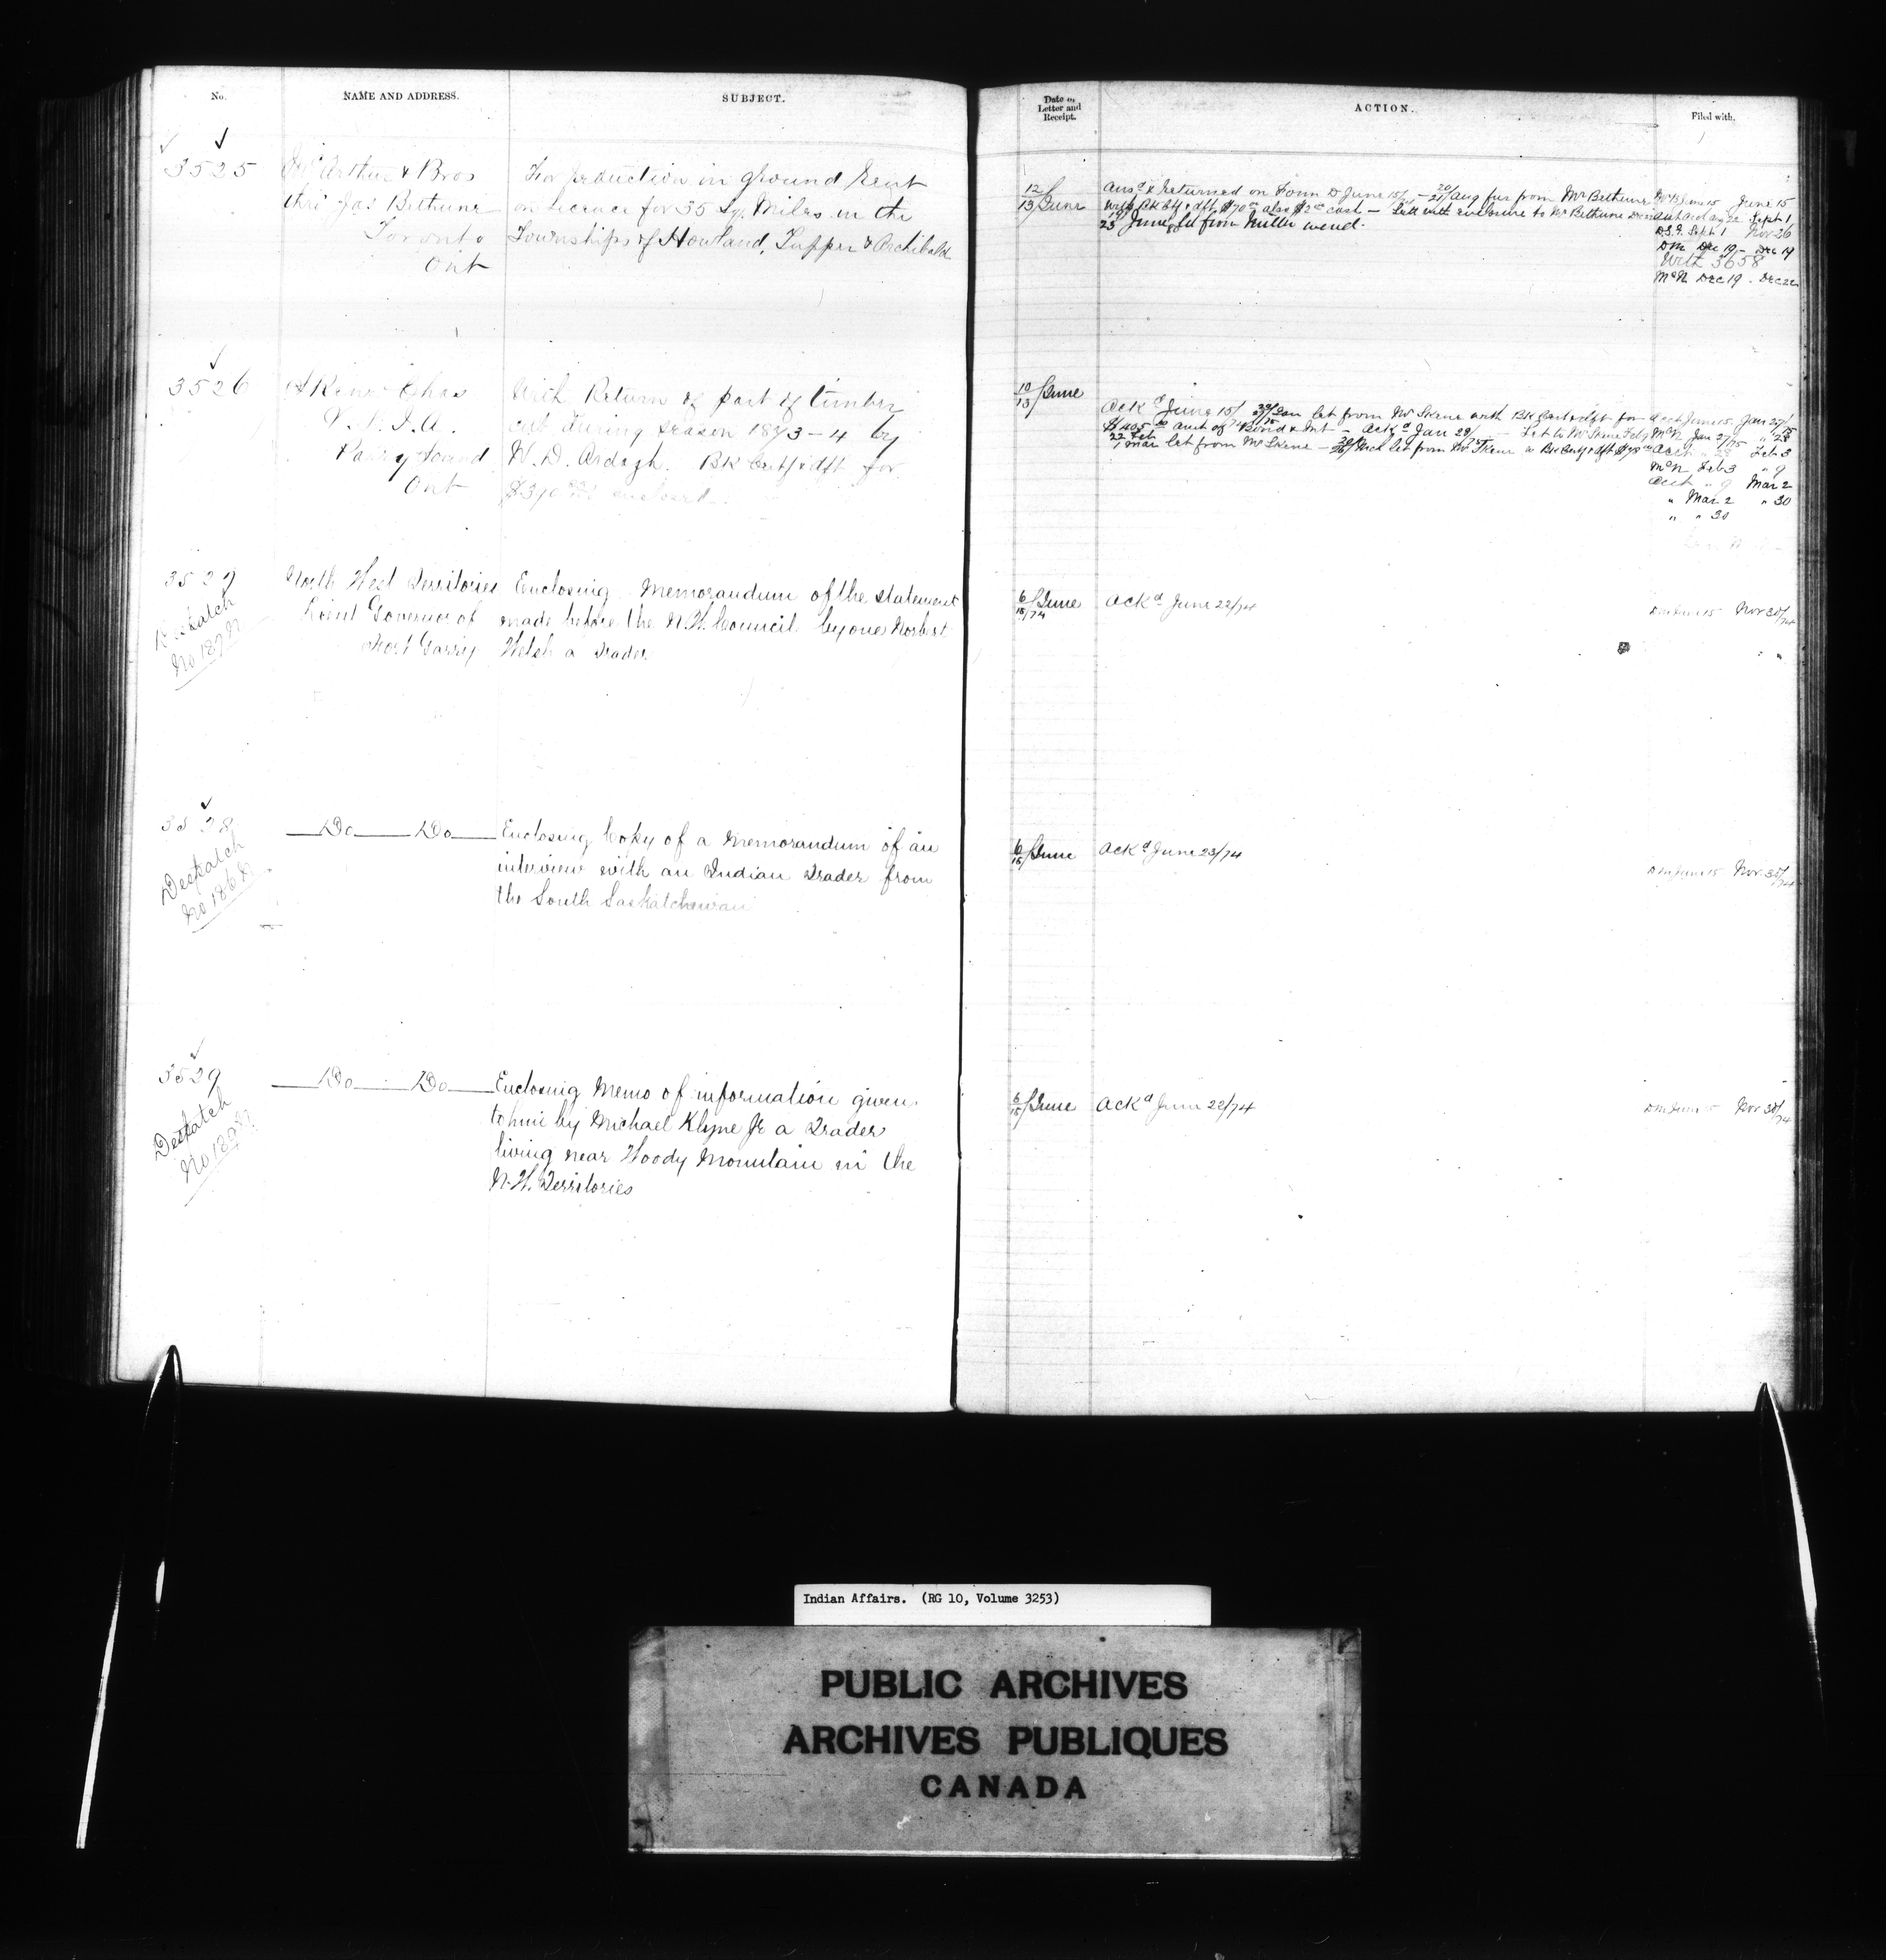 No.
NAME AND ADDRESS.
SUBJECT.
Date of Letter and Receipt.
ACTION.
Filed with.
3525
McArthur & Bros
thro' Jas Bethune
Toronto
Ont
For reduction in ground Rent
on licence for 35 Sq. Miles in the
Townships of Howland, Tupper & Archibald
12/13 June
Ansd & returned on Form D June 15/ - 20/21 Aug fur from Mr Bethune
June 15
with Bk Ctf & dft $70 also $2 cash - Let with enclosure to Mr Bethune
Sept 1
June let from Miller
Sept 1 Nov 26
DM Dec 19 - Dec 19
With 3658
McN Dec 19 -
3526
Skene Chas
V.S.I.A.
Parry Sound
Ont
With Return of part of timber
cut during season 1873-4 by
W. D. Ardagh. Bk Certf & dft for
$390 enclosed
10/13 June
Ackd June 15/ Jan let from Mr Skene with Bk Cert & dft for
Acct June 15. Jan 27/75
$405 amt of Bond & Int - Ackd Jan 28/ - Let to Mr Skene Feb 9
McN Jan 27/75 " 28
22 Feb
1 Mar let from Mr Skene - Mch let from Mr Skene
Acct " 28 Feb 3
McN Feb 3 " 9
Acct " 9 Mar 2
" Mar 2 " 30
" " 30
3527
Despatch
North West Territories
Lieut Governor of
Fort Garry
Enclosing Memorandum of the statement
made before the N.W. Council by one Norbert
Welsh a Trader
6/15 June /74
Ackd June 22/74
DM June 15 Nov 30/74
3528
Despatch
Do Do
Enclosing Copy of a Memorandum of an
interview with an Indian Trader from
the South Saskatchewan
6/15 June
Ackd June 23/74
DM June 15 Nov 30/74
3529
Despatch
Do Do
Enclosing Memo of information given
to him by Michael Klyne Jr a Trader
living near Woody Mountain in the
N.W. Territories
6/15 June
Ackd June 22/74
DM June 15 Nov 30/74
Indian Affairs. (RG 10, Volume 3253)
PUBLIC ARCHIVES
ARCHIVES PUBLIQUES
CANADA